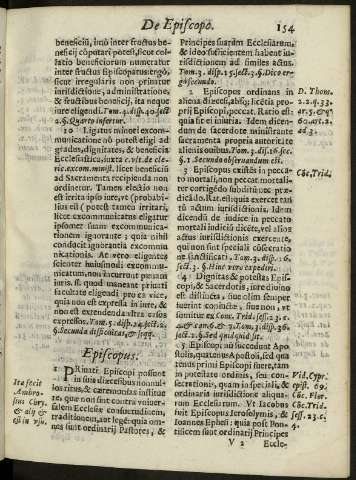 De Episcopo.
154
beneficiū, imò inter fructus be-
neficij cōputari potest, sicut col-
latio beneficiorum numeratur
inter fructus Episcopatus: ergò,
sicut irregularis non priuatur
iurisdictione, administratione,
& fructibus beneficij, ita neque
iure eligendi. Tom. 4. disp. 10. sect
2. §. Quarto infertur.
10 Ligatus minori excom-
municatione nō potest eligi ad
gradus, dignitates, & beneficia
Ecclesiastica, iuxta c. vlt. de cle-
ric. excom. minist. licet beneficiū
ad Sacramenti recipienda non
ordinetur. Tamen electio non
est irrita ipso iure, vt (probabi-
lius est) potest tamen irritari,
licet excommunicatus eligatur
ipsomet suam excommunica-
tionem ignorante; quia nihil
conducit ignorantia excommu-
nicationis. At verò eligentes
solenter huiusmodi excommu-
nicatum, non incurrunt pœnam
iuris, si quod maneant priuati
facultate eligendi pro ea vice,
quia non est expressa in iure, &
non est extendenda extra casus
expressos. Tom. 5. disp. 24. sect. 2.
§. Secunda difficultas, & seqq.
Episcopies.
1 PRiuati Episcopi possunt
in suis diœcesibus nonnul-
los ritus, & cæremonias institue
re, quæ non sint contra vniuer-
salem Ecclesiæ consuetudinem,
traditionem, aut legē: quia om-
nes sunt ordinarij Pastores, &
Ita fecit
Ambro-
sius Chry.
& alij &
est in vsu.
Principes suarum Ecclesiarum,
& ideo sufficientem habent iu-
risdictionem ad similes actus.
Tom. 3. disp. 15. sect. 3. §. Dico er-
gò secundo.
2 Episcopes ordinans in
aliena diœcesi, absq; licētia pro-
prij Episcopi peccat. Ratio est:
quia sit ei iniuria. Idem dicen-
dum de sacerdote ministrante
sacramenta propria autoritate
in alienis ouibus. Tom. 3. disp. 16. sec.
§. 1. Secundo obseruandum est.
3 Episcopus existēs in pecca-
to mortali, non peccat mortali-
ter corrigēdo subditū occ præ-
dicādo. Rat. est: quia exercet tan-
tū actum iurisdictionis. Idem
dicendū de iudice in peccato
mortali iudiciū dicēte, vel alios
actus iurisdictionis exercente,
qui non sunt speciali cōsecratio-
ne sanctificati. Tom. 3. disp. 16.
sect. 3. §. Hinc vero expediri.
4 Dignitas, & potestas Epis-
copi, & Sacerdotis, iure diuino
est distincta, siue olim semper
fuerint coniuncte, siue non, vt
sumitur ex Conc. Trid. sess. 23. c.
4. & can. 6. & 7. Tom. 3. disp. 36.
sect. 2. §. Sed quidquid sit.
5 Episcopi nō succedunt Apos-
tolis, quatenus Apostoli, sed qua
tenus primi Episcopi fuere, tam
in potestate ordinis, seu con-
secrationis, quam in speciali, &
ordinaria iurisdictione aliqua-
rum Ecclesiarum. Vt Iacobus
fuit Episcopus Ierosolymis, &
Ioannes Ephesi: quia post Pon-
tificem sunt ordinarij Principes
V 2
Eccle-
D. Thom.
2. 2. q. 33.
Cōc. Trid.
Vid. Cypr.
epist. 69.
Cōc. Flor.
Cōc. Trid.
sess. 23. c.
4.